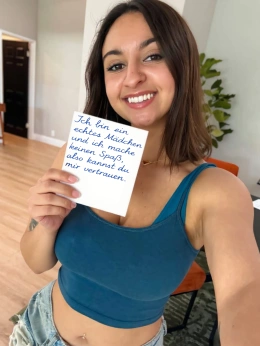 Ich bin ein
echtes Mädchen
und ich mache
keinen Spaß,
also kannst du
mir vertrauen.